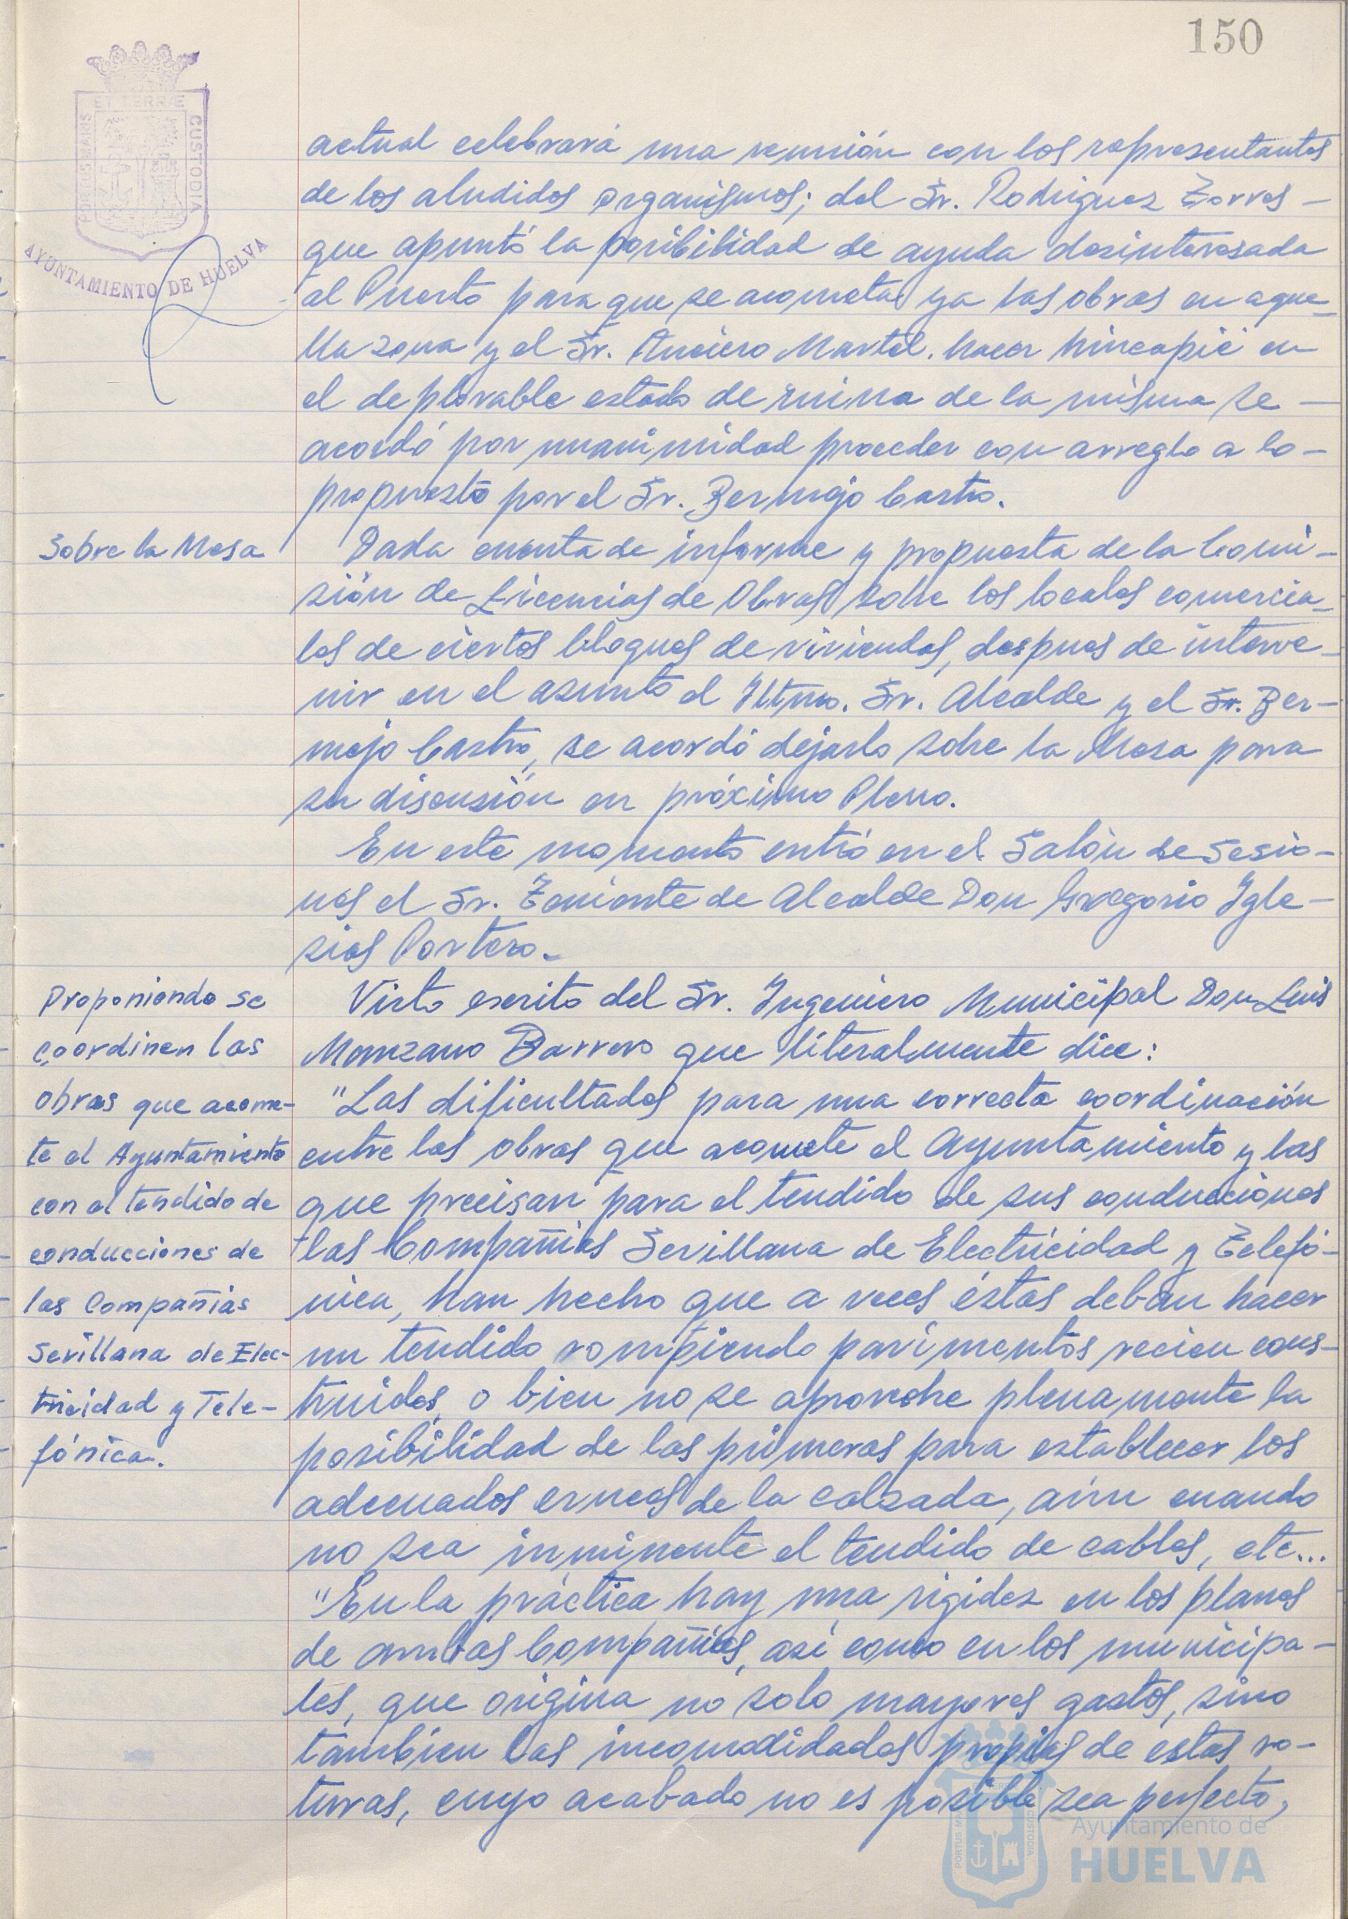 150
PORTUS MARIS ET TERRAE CUSTODIA
AYUNTAMIENTO DE HUELVA
actual celebrará una reunión con los representantes
de los aludidos organismos; del Sr. Rodriguez Torres -
que apuntó la posibilidad de ayuda desinteresada
al Puerto para que se acometa ya las obras en aque-
lla zona y el Sr. Anciero Martel. hacer hincapié en
el deplorable estado de ruina de la misma se -
acordó por unanimidad proceder con arreglo a lo -
propuesto por el Sr. Bermejo Castro.
Sobre la Mesa
Dada cuenta de informe y propuesta de la Comi-
sión de Licencias de Obras sobre los locales comercia-
les de ciertos bloques de viviendas, despues de interve-
nir en el asunto el Iltmo. Sr. Alcalde y el Sr. Ber-
mejo Castro, se acordó dejarlo sobre la Mesa para
su discusión en próximo Pleno.
En este momento entró en el Salón de Sesio-
nes el Sr. Teniente de Alcalde Don Gregorio Igle-
sias Portero.-
Proponiendo se
coordinen las
obras que acome-
te el Ayuntamiento
con el tendido de
conducciones de
las Compañias
Sevillana de Elec-
tricidad y Tele-
fónica.
Visto escrito del Sr. Ingeniero Municipal Don Luis
Manzano Barrero que literalmente dice:
"Las dificultades para una correcta coordinación
entre las obras que acomete el Ayuntamiento y las
que precisan para el tendido de sus conducciones
las Compañias Sevillana de Electricidad y Telefó-
nica, han hecho que a veces éstas deban hacer
un tendido rompiendo pavimentos recien cons-
truidos, o bien no se aproveche plenamente la
posibilidad de las primeras para establecer los
adecuados cruces de la calzada, aún cuando
no sea inminente el tendido de cables, etc...
"En la práctica hay una rigidez en los planes
de ambas Compañias, asi como en los municipa-
les, que origina no solo mayores gastos, sino
tambien las incomodidades propias de estas ro-
turas, cuyo acabado no es posible sea perfecto,
Ayuntamiento de
HUELVA